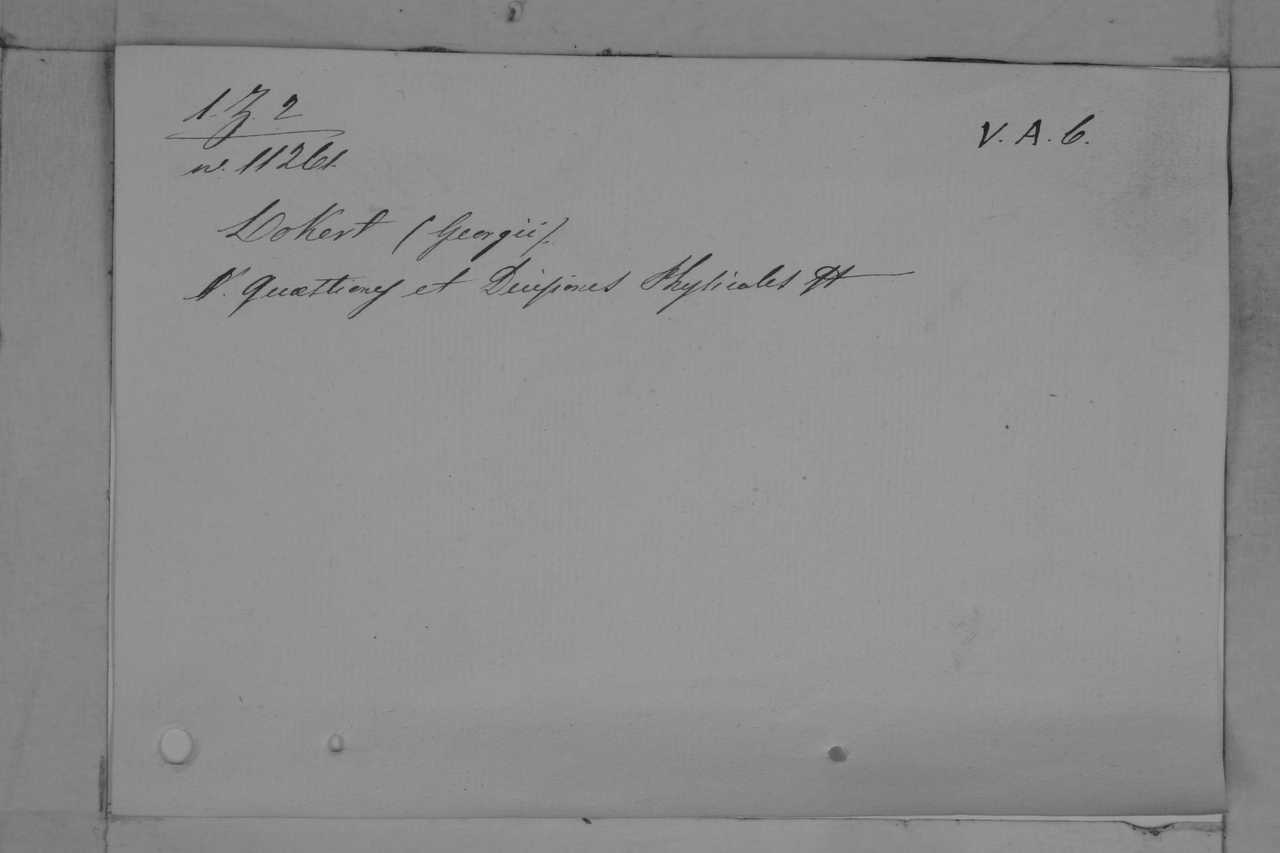 1. Z. 2
V. A. 6.
n. 11261.
Lokert (Georgii).
V. Quæstiones et Decisiones Physicales &